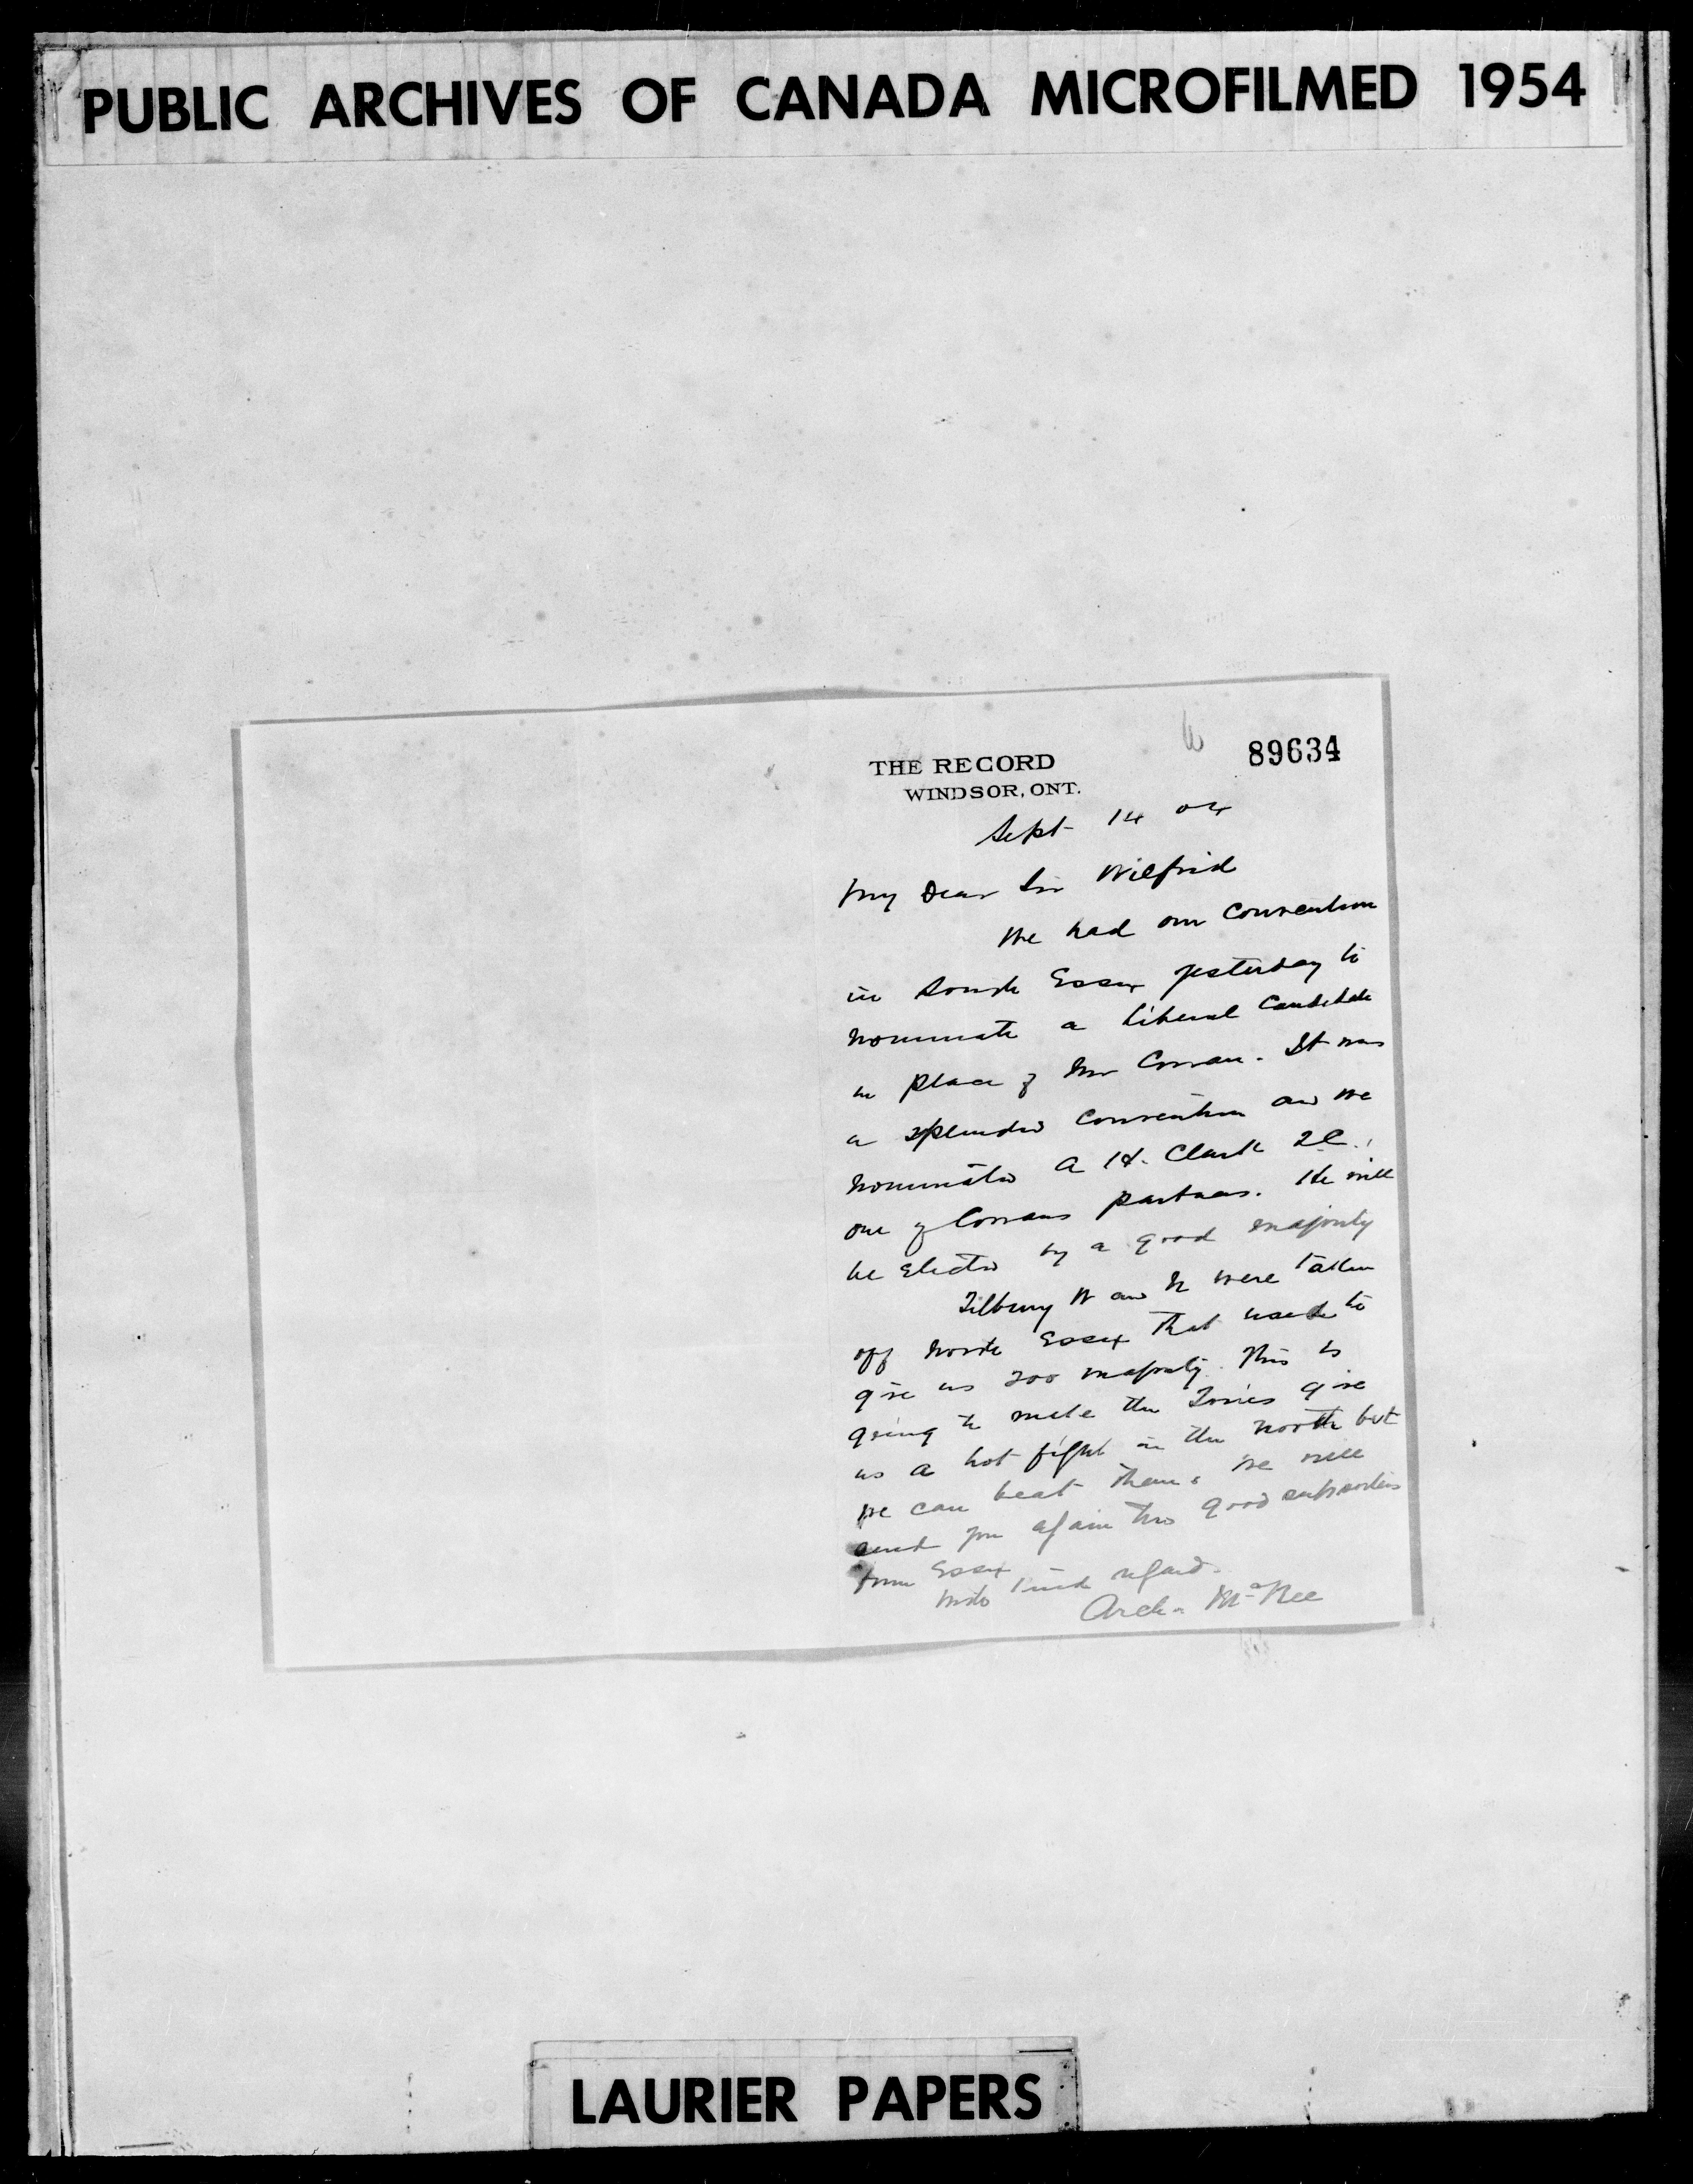 PUBLIC ARCHIVES OF CANADA MICROFILMED 1954
89634
THE RECORD
WINDSOR, ONT.
Sept 14 04
My Dear Sir Wilfrid
We had our Convention
in South Essex yesterday to
nominate a Liberal Candidate
in place of Mr Cowan. It was
a splendid Convention and we
nominated A H. Clark K.C.,
one of Cowans partners. He will
be elected by a good majority
Tilbury W and N were taken
off North Essex that used to
give us 200 majority. This is
going to make the Tories give
us a hot fight in the North but
we can beat them. We will
send you again two good supporters
from Essex
With kind regard.
Arch. McNee
LAURIER PAPERS